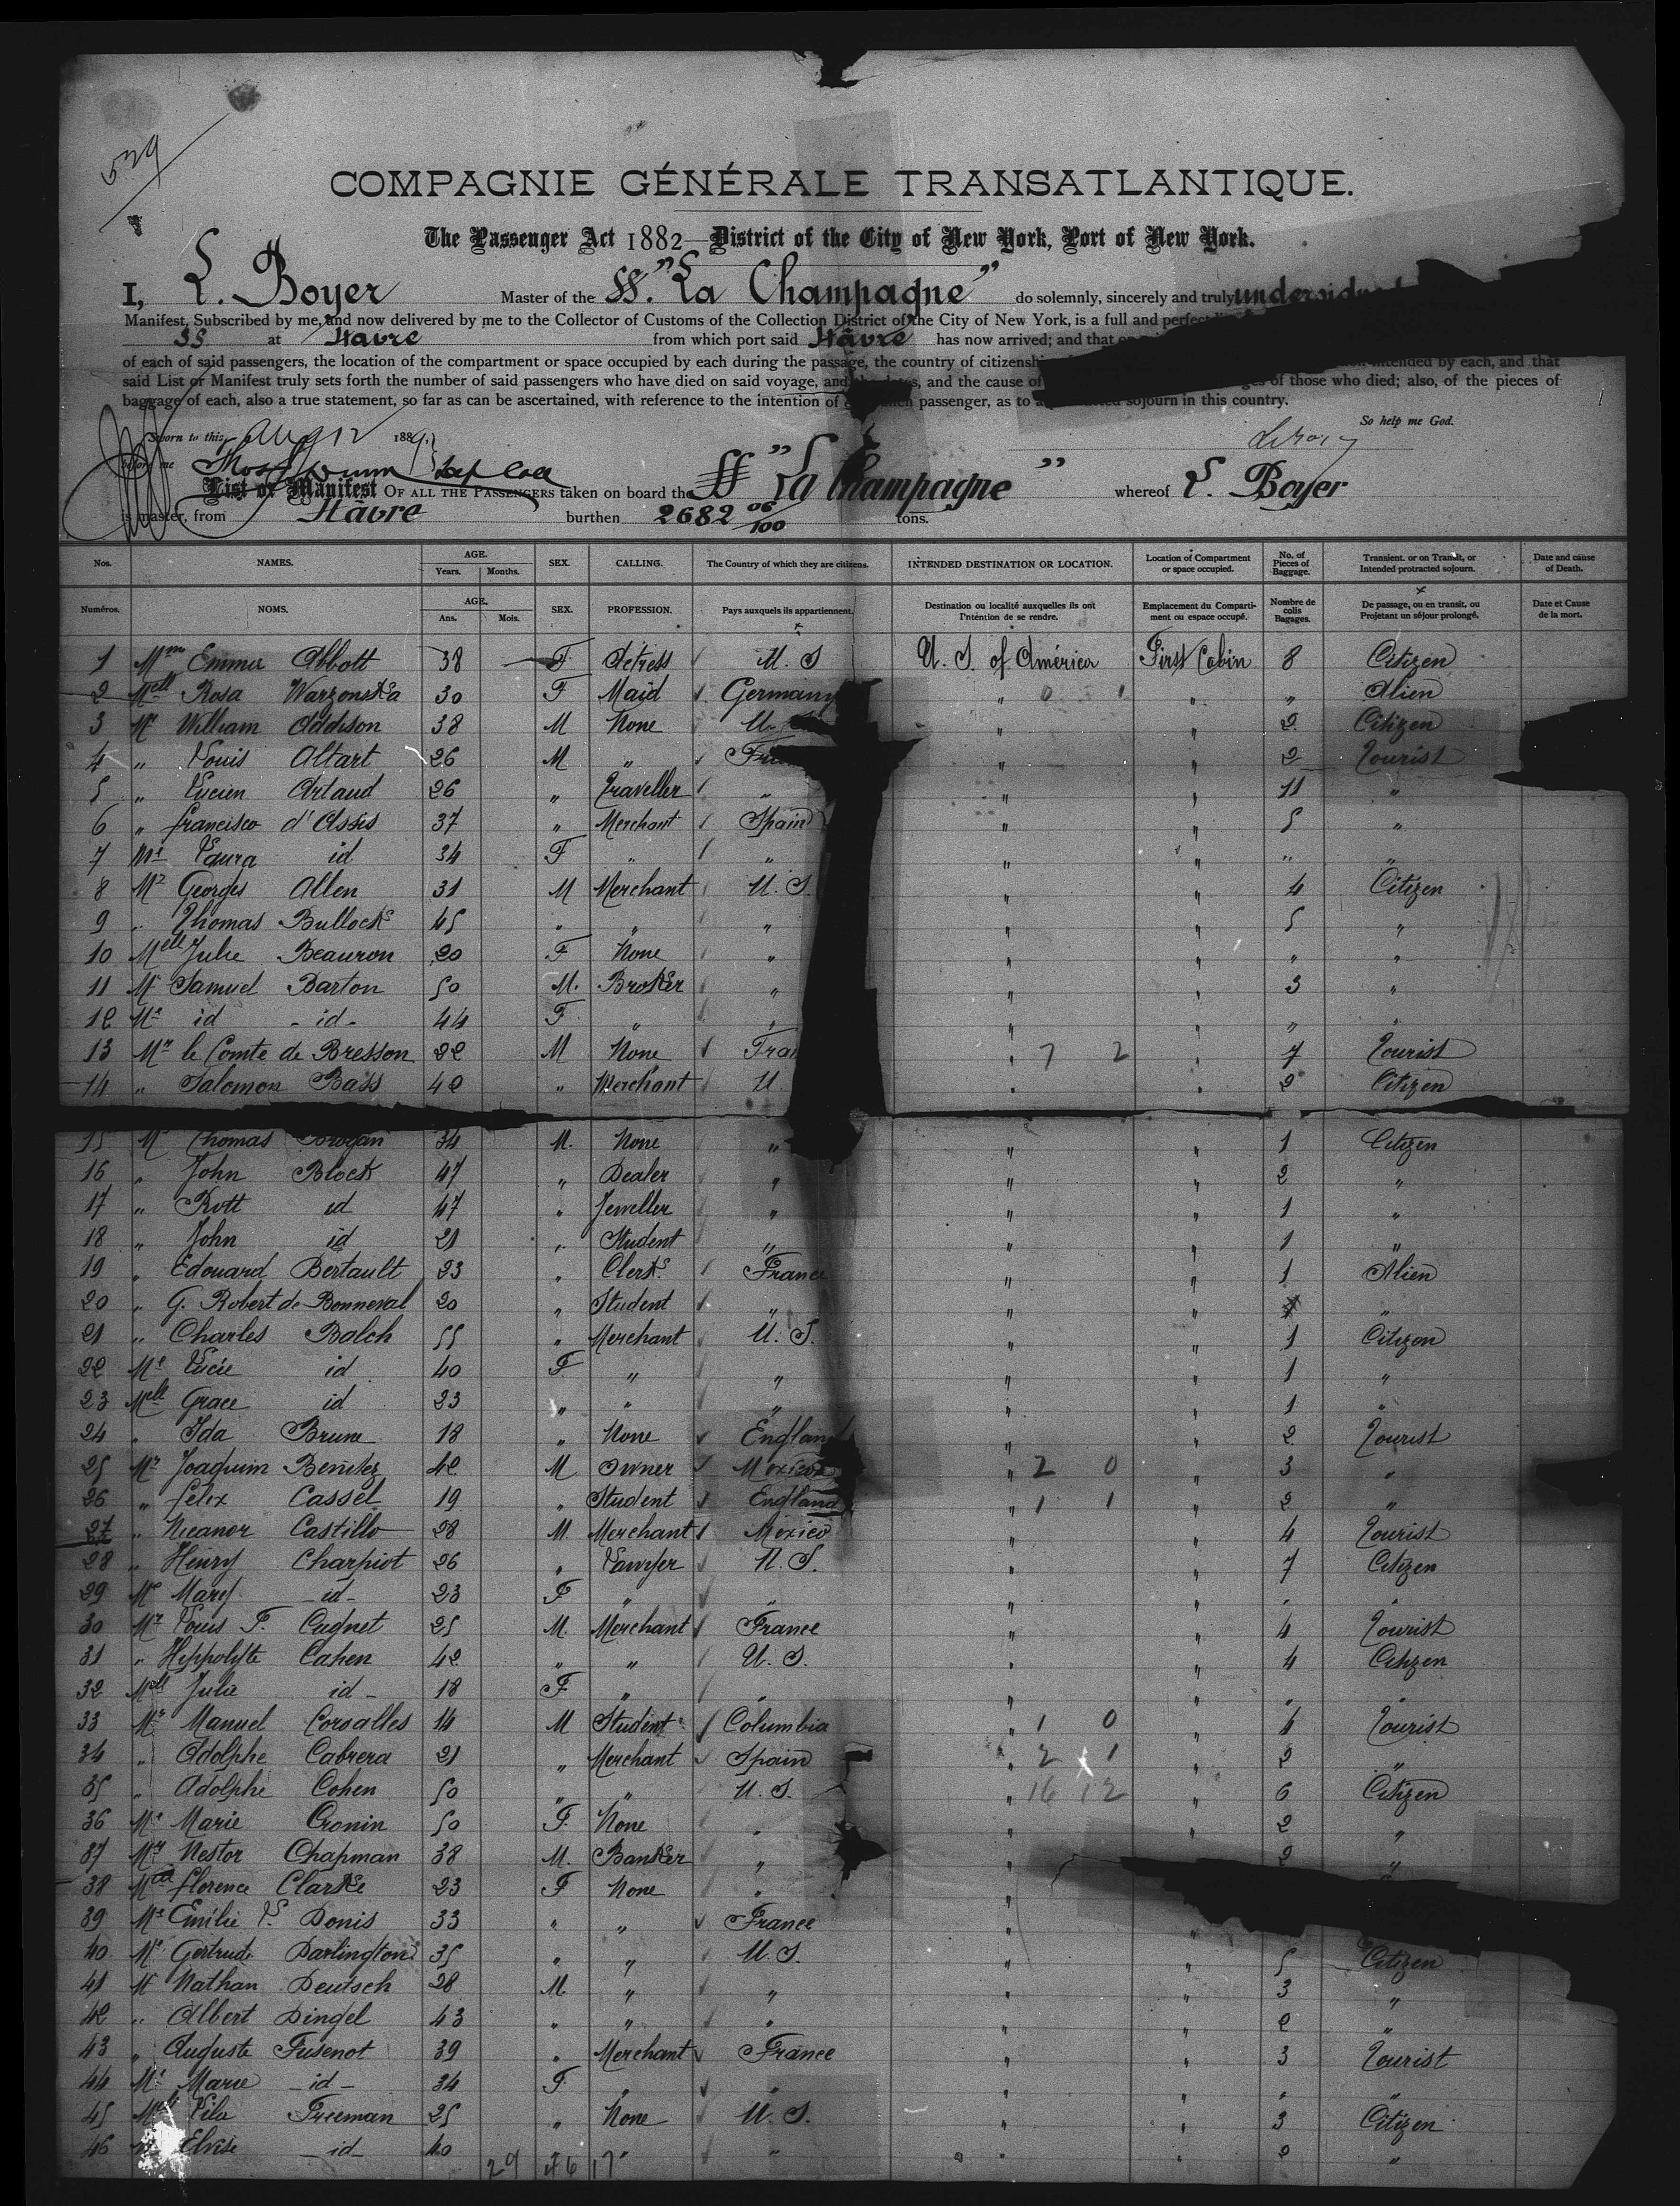 529
COMPAGNIE GÉNÉRALE TRANSATLANTIQUE.
The Passenger Act 1882 — District of the City of New York, Port of New York.
I, L. Boyer Master of the SS. "La Champagne" do solemnly, sincerely and truly
Manifest, Subscribed by me, and now delivered by me to the Collector of Customs of the Collection District of the City of New York, is a full and perfect
at Hâvre from which port said Hâvre has now arrived; and that
of each of said passengers, the location of the compartment or space occupied by each during the passage, the country of citizenship intended by each, and that
said List or Manifest truly sets forth the number of said passengers who have died on said voyage, and the dates, and the cause of of those who died; also, of the pieces of
baggage of each, also a true statement, so far as can be ascertained, with reference to the intention of each such passenger, as to a protracted sojourn in this country.
So help me God.
Sworn to this Aug 12 1889
before me
List or Manifest OF ALL THE PASSENGERS taken on board the SS "La Champagne" whereof L. Boyer
is master, from Hâvre burthen 2682 06/100 tons.
Nos. NAMES. AGE. Years. Months. SEX. CALLING. The Country of which they are citizens. INTENDED DESTINATION OR LOCATION. Location of Compartment or space occupied. No. of Pieces of Baggage. Transient. or on Transit, or Intended protracted sojourn. Date and cause of Death.
Numéros. NOMS. AGE. Ans. Mois. SEX. PROFESSION. Pays auxquels ils appartiennent. Destination ou localité auxquelles ils ont l'intention de se rendre. Emplacement du Compartiment ou espace occupé. Nombre de colis Bagages. De passage, ou en transit, ou Projetant un séjour prolongé. Date et Cause de la mort.
1 Mme Emma Abbott 38 F Actress U. S U. S. of América First Cabin 8 Citizen
2 Melle Rosa Warzonska 30 F Maid Germany " 0 1 " " Alien
3 Mr William Addison 38 M None U. " " 2 Citizen
4 " Louis Altart 26 M " " " 2 Tourist
5 " Lucien Artaud 26 " Traveller " " " 11 "
6 " francisco d'Assis 37 " Merchant Spain " " 5 "
7 Me Laura id 34 F " " " " " "
8 Mr Georges Allen 31 M Merchant U. S. " " 4 Citizen
9 " Thomas Bullock 45 " " " " " 5 "
10 Melle Julie Beauron 20 F None " " " " "
11 Mr Samuel Barton 50 M. Broker " " " 3 "
12 Me id - id - 44 F " " " " " "
13 Mr le Comte de Bresson 22 M None Fran " 7 2 " 7 Tourist
14 " Salomon Bass 42 " Merchant U. " " 2 Citizen
15 Mr Thomas Brogan 34 M. None " " " 1 Citizen
16 " John Block 47 " Dealer " " " 2 "
17 " Rott id 47 " Jeweller " " " 1 "
18 " John id 21 " Student " " " 1 "
19 " Edouard Bertault 23 " Clerk France " " 1 Alien
20 " G. Robert de Bonneval 20 " Student " " " "
21 " Charles Balch 55 " Merchant U. S. " " 1 Citizen
22 Me Lucie id 40 F " " " " 1 "
23 Melle Grace id 23 " " " " " 1 "
24 " Ida Brune 18 " None England " " 2 Tourist
25 Mr Joaquim Benitez 42 M Owner Mexico " 2 0 " 3 "
26 " felix Cassel 19 " Student England " 1 1 " 2 "
27 " Nicanor Castillo 28 M Merchant Mexico " " 4 Tourist
28 " Henry Charpiot 26 " Lawyer U. S. " " 7 Citizen
29 Me Mary - id - 23 F " " " " " "
30 Mr Louis F. Cugnet 25 M. Merchant France " " 4 Tourist
31 " Hippolyte Cahen 42 " " U. S. " " 4 Citizen
32 Melle Julie id - 18 F " " " " " "
33 Mr Manuel Corsalles 14 M Student Columbia " 1 0 " 4 Tourist
34 " Adolphe Cabrera 21 " Merchant Spain " 2 1 " 2 "
35 " Adolphe Cohen 50 " " U. S. " 16 12 " 6 Citizen
36 Me Marie Cronin 50 F. None " " " 2 "
37 Mr Nestor Chapman 38 M. Banker " " 2 "
38 Melle florence Clarke 23 F None " "
39 Me Emilie L. Donis 33 " " France " "
40 Me Gertrude Darlington 35 " " U. S. " " 5 Citizen
41 Mr Nathan Deutsch 28 M " " " " 3 "
42 " Albert Dingel 43 " " " " " 2 "
43 " Auguste Fusenot 39 " Merchant France " " 3 Tourist
44 Me Marie - id - 34 F " " " " " "
45 Melle Lila Freeman 25 " None U. S. " " 3 Citizen
46 Elvise - id - 40 " " " " " 2 "
29 46 17